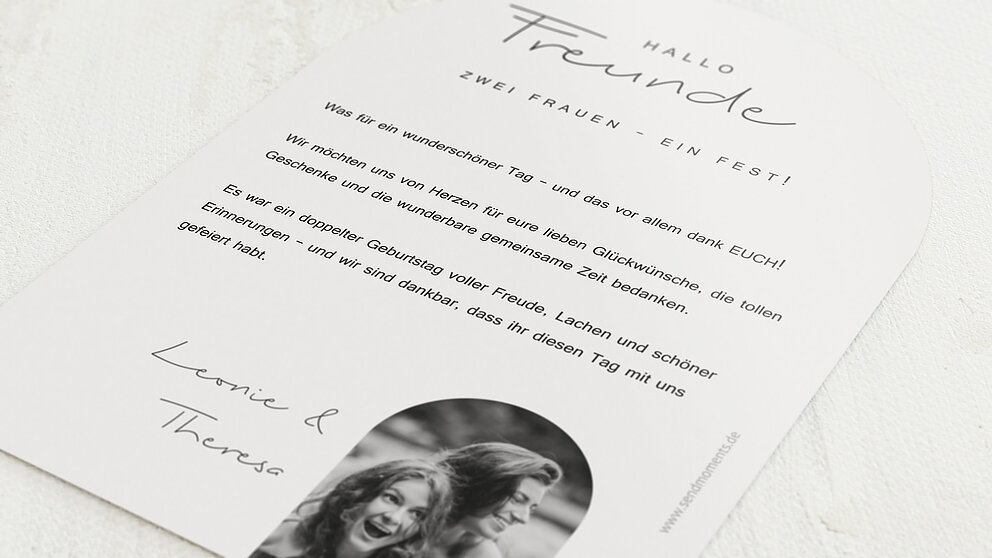 HALLO
Freunde
ZWEI FRAUEN – EIN FEST!
Was für ein wunderschöner Tag – und das vor allem dank EUCH!
Wir möchten uns von Herzen für eure lieben Glückwünsche, die tollen
Geschenke und die wunderbare gemeinsame Zeit bedanken.
Es war ein doppelter Geburtstag voller Freude, Lachen und schöner
Erinnerungen – und wir sind dankbar, dass ihr diesen Tag mit uns
gefeiert habt.
Leonie &
Theresa
www.sendmoments.de